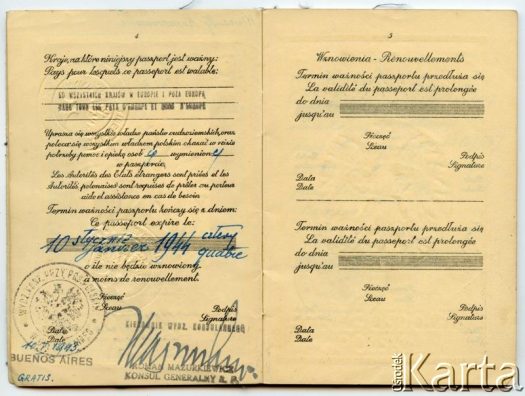 4
Kraje, na które niniejszy paszport jest ważny:
Pays pour lesquels ce passeport est valable:
DO WSZYSTKICH KRAJÓW W EUROPIE I POZA EUROPĄ
DANS TOUS LES PAYS D'EUROPE ET HORS D'EUROPE
Uprasza się wszystkie władze państw cudzoziemskich, oraz
poleca się wszystkim władzom polskim okazać w razie
potrzeby pomoc i opiekę osob wymienion
w paszporcie.
Les Autorités des Etats étrangers sont priées et les
Autorités polonaises sont requises de prêter au porteur
aide et assistance en cas de besoin
Termin ważności paszportu kończy się z dniem:
Ce passeport expire le:
10 stycznia 1944 cztery
janvier quatre
o ile nie będzie wznowiony
à moins de renouvellement.
Pieczęć
Sceau
Podpis
Signature
KIEROWNIK WYDZ. KONSULARNEGO
Data
Date
10.I.1943
BUENOS AIRES
ROMAN MAZURKIEWICZ
KONSUL GENERALNY R. P.
GRATIS.
5
Wznowienia - Renouvellements
Termin ważności paszportu przedłuża się
La validité du passeport est prolongée
do dnia
jusqu'au
Pieczęć
Sceau
Podpis
Signature
Data
Date
Termin ważności paszportu przedłuża się
La validité du passeport est prolongée
do dnia
jusqu'au
Pieczęć
Sceau
Podpis
Signature
Data
Date
ośrodek
Karta